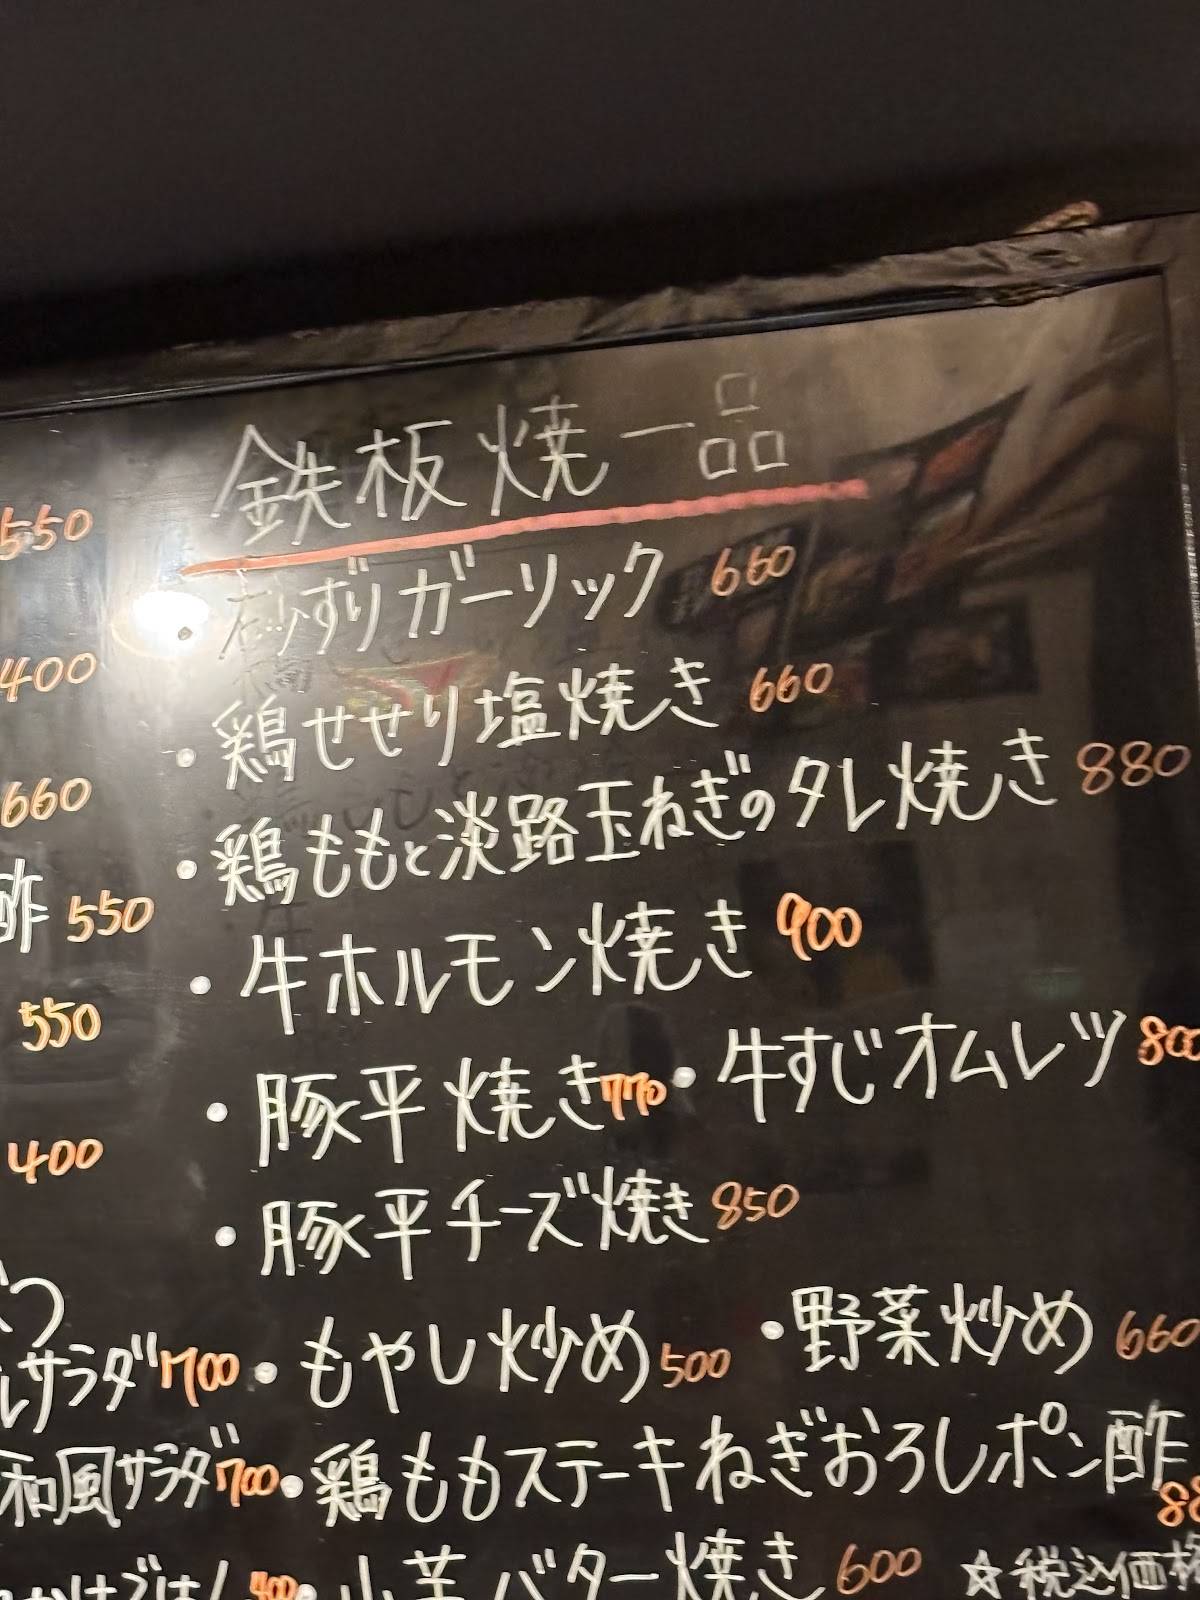 鉄板焼一品
砂ずりガーリック 660
・鶏せせり塩焼き 660
・鶏ももと淡路玉ねぎのタレ焼き 880
・牛ホルモン焼き 900
・豚平焼き 770 ・牛すじオムレツ 800
・豚平チーズ焼き 850
・もやし炒め 500 ・野菜炒め 660
・鶏ももステーキねぎおろしポン酢
・小芋バター焼き 600 ☆税込価格
550
400
660
酢 550
550
400
サラダ 700
和風サラダ 700
ごはん 400